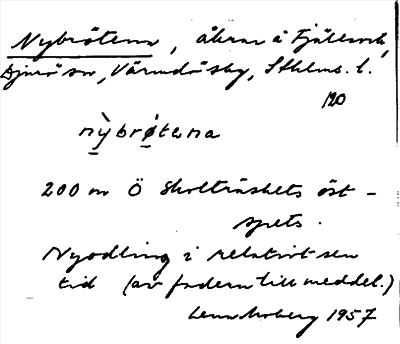 Nybrötena, åkrar å Fjällsvik,
Djurö sn, Värmdö sby, Sthlms. l.
120
nỳbrötena
200 m Ö Skolträskets öst-
spets.
Nyodling i relativt sen
tid (av fadern till meddel.)
1957